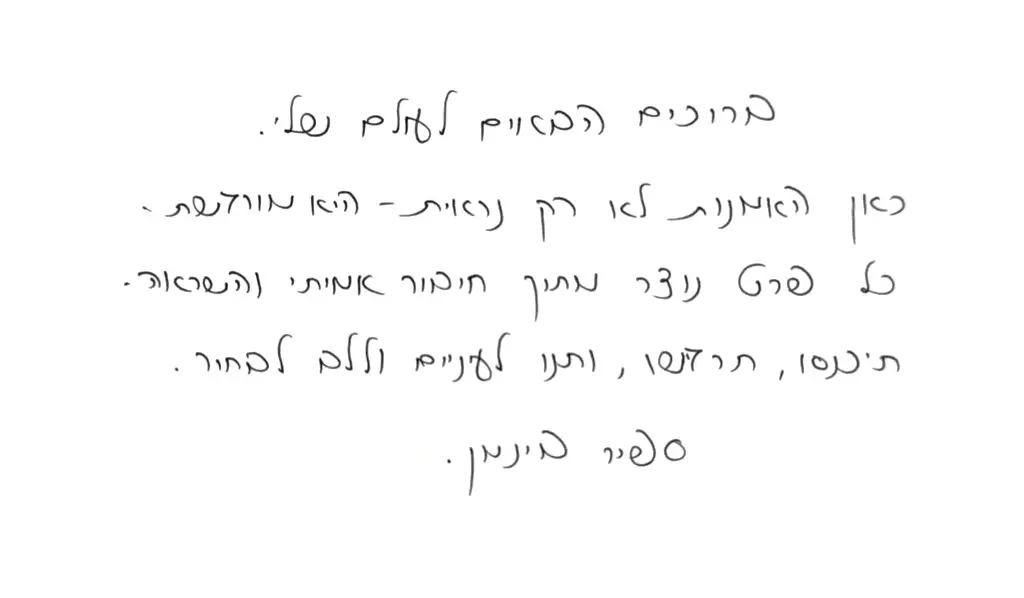 ברוכים הבאים לעולם שלי.
כאן האמנות לא רק נראית - היא מורגשת.
כל פרט נוצר מתוך חיבור אמיתי והשראה.
תיכנסו, תרגשו, ותנו לעיניים וללב לבחור.
ספיר בינמן.